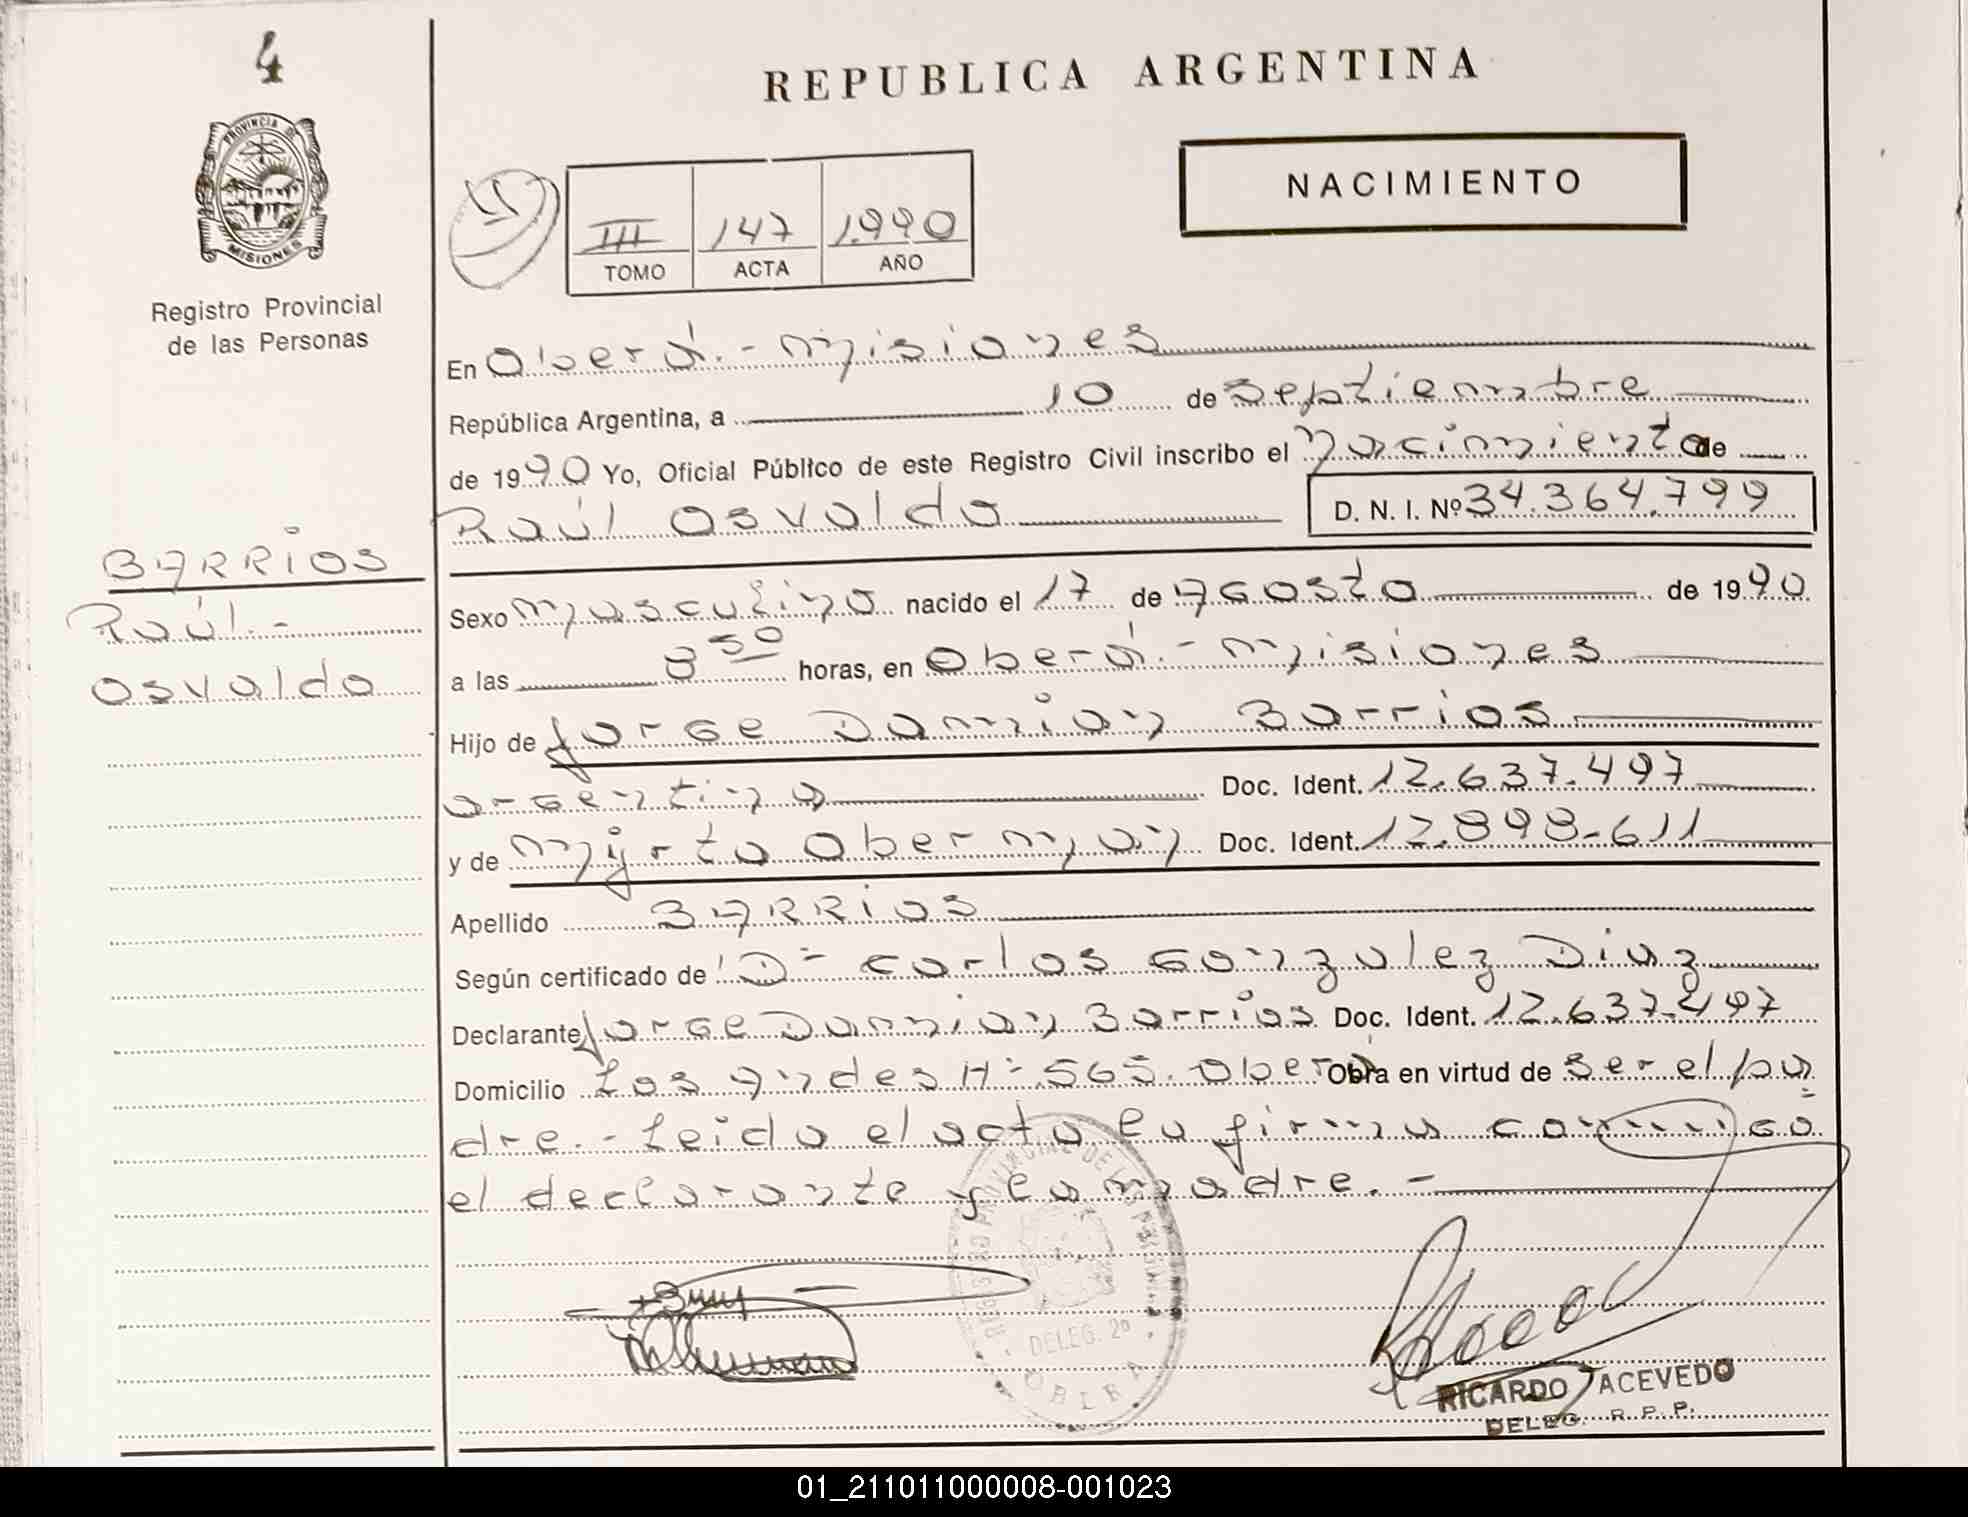 4
PROVINCIA DE
MISIONES
Registro Provincial
de las Personas
REPUBLICA ARGENTINA
NACIMIENTO
III 147 1.990
TOMO ACTA AÑO
En Oberá.- Misiones
República Argentina, a 10 de Septiembre
de 1990 Yo, Oficial Público de este Registro Civil inscribo el Nacimiento de
Raúl Osvaldo D. N. I. Nº 34.364.799
BARRiOS
Raúl.-
Osvaldo
Sexo masculino nacido el 17 de Agosto de 1990
a las 8 50 horas, en Oberá.- Misiones
Hijo de Jorge Damian Barrios
argentino Doc. Ident. 12.637.497
y de Myrta Oberman Doc. Ident. 12.898.611
Apellido BARRiOS
Según certificado de Dr Carlos Gonzalez Diaz
Declarante Jorge Damian Barrios Doc. Ident. 12.637.497
Domicilio Los Andes Nº 565. Oberá Obra en virtud de ser el pa
dre.- Leida el acta la firma conmigo
el declarante y la madre.-
REGISTRO PROVINCIAL DE LAS PERSONAS
DELEG. 2º
OBERA
RICARDO ACEVEDO
DELEG. R. P. P.
01_211011000008-001023